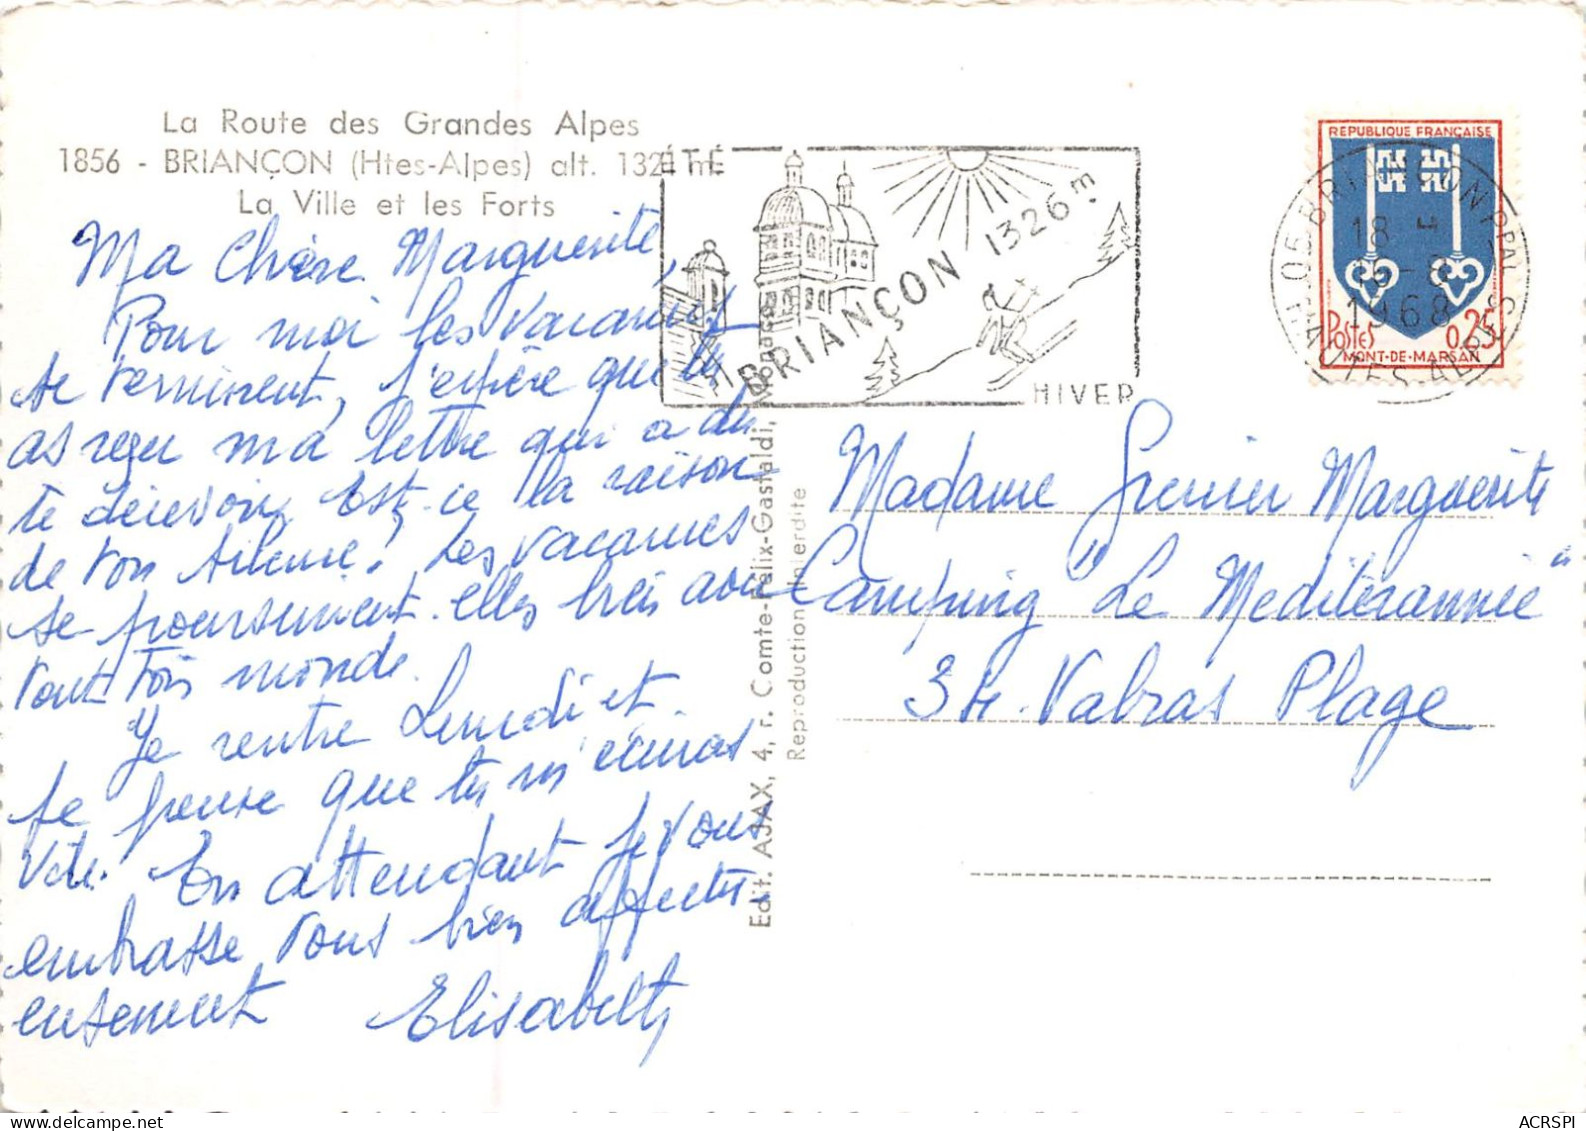 La Route des Grandes Alpes
1856 - BRIANÇON (Htes-Alpes) alt. 132 m
La Ville et les Forts
Ma Chère Marguerite,
Pour moi les vacances
se terminent, j'espère que tu
as reçu ma lettre qui a du
te décevoir, Est-ce la raison
de ton silence? Les vacances
se poursuivent-elles bien avec
tout ton monde.
Je rentre Lundi et
je pense que tu m'écriras
vite. En attendant je vous
embrasse vous bien affectu-
eusement Elisabeth
ÉTÉ
BRIANÇON 1326 m.
HIVER
Edit. AJAX, 4, r. Comte-Félix-Gastaldi, Monaco
Reproduction interdite
REPUBLIQUE FRANÇAISE
POSTES 0,25
MONT-DE-MARSAN
05 BRIANÇON PPAL
18 H
16-8
1968
HAUTES-ALPES
Madame Grenier Marguerite
Camping "Le Mediterannée"
34. Valras Plage
ACRSPI